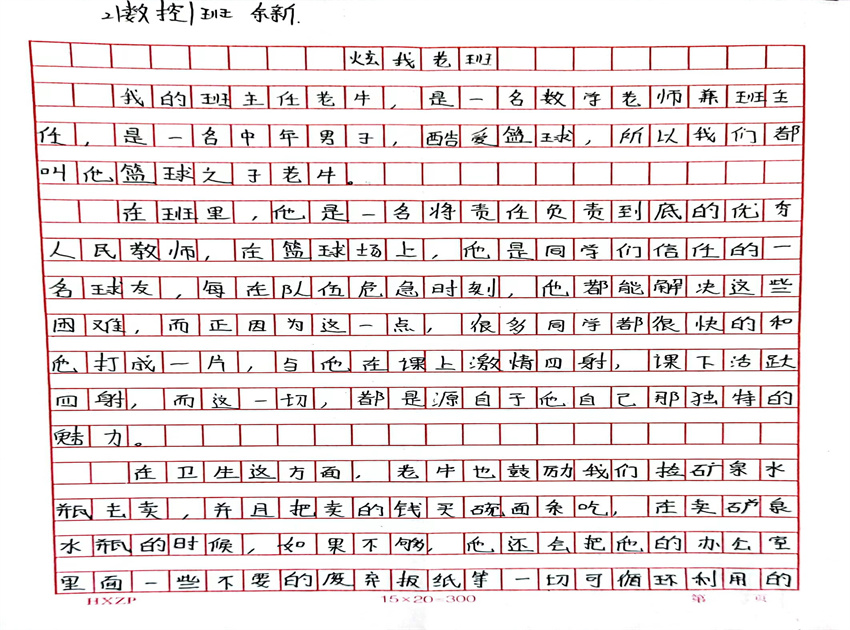 21数控1班 余新.
炫我老班
我的班主任老牛，是一名数学老师兼班主
任，是一名中年男子，酷爱篮球，所以我们都
叫他篮球之子老牛。
在班里，他是一名将责任负责到底的优秀
人民教师，在篮球场上，他是同学们信任的一
名球友，每在队伍危急时刻，他都能解决这些
困难，而正因为这一点，很多同学都很快的和
他打成一片，与他在课上激情四射，课下活跃
四射，而这一切，都是源自于他自己那独特的
魅力。
在卫生这方面，老牛也鼓励我们捡矿泉水
瓶去卖，并且把卖的钱买碗面条吃，在卖矿泉
水瓶的时候，如果不够，他还会把他的办公室
里面一些不要的废弃报纸等一切可循环利用的
HXZP 15×20=300 第 页